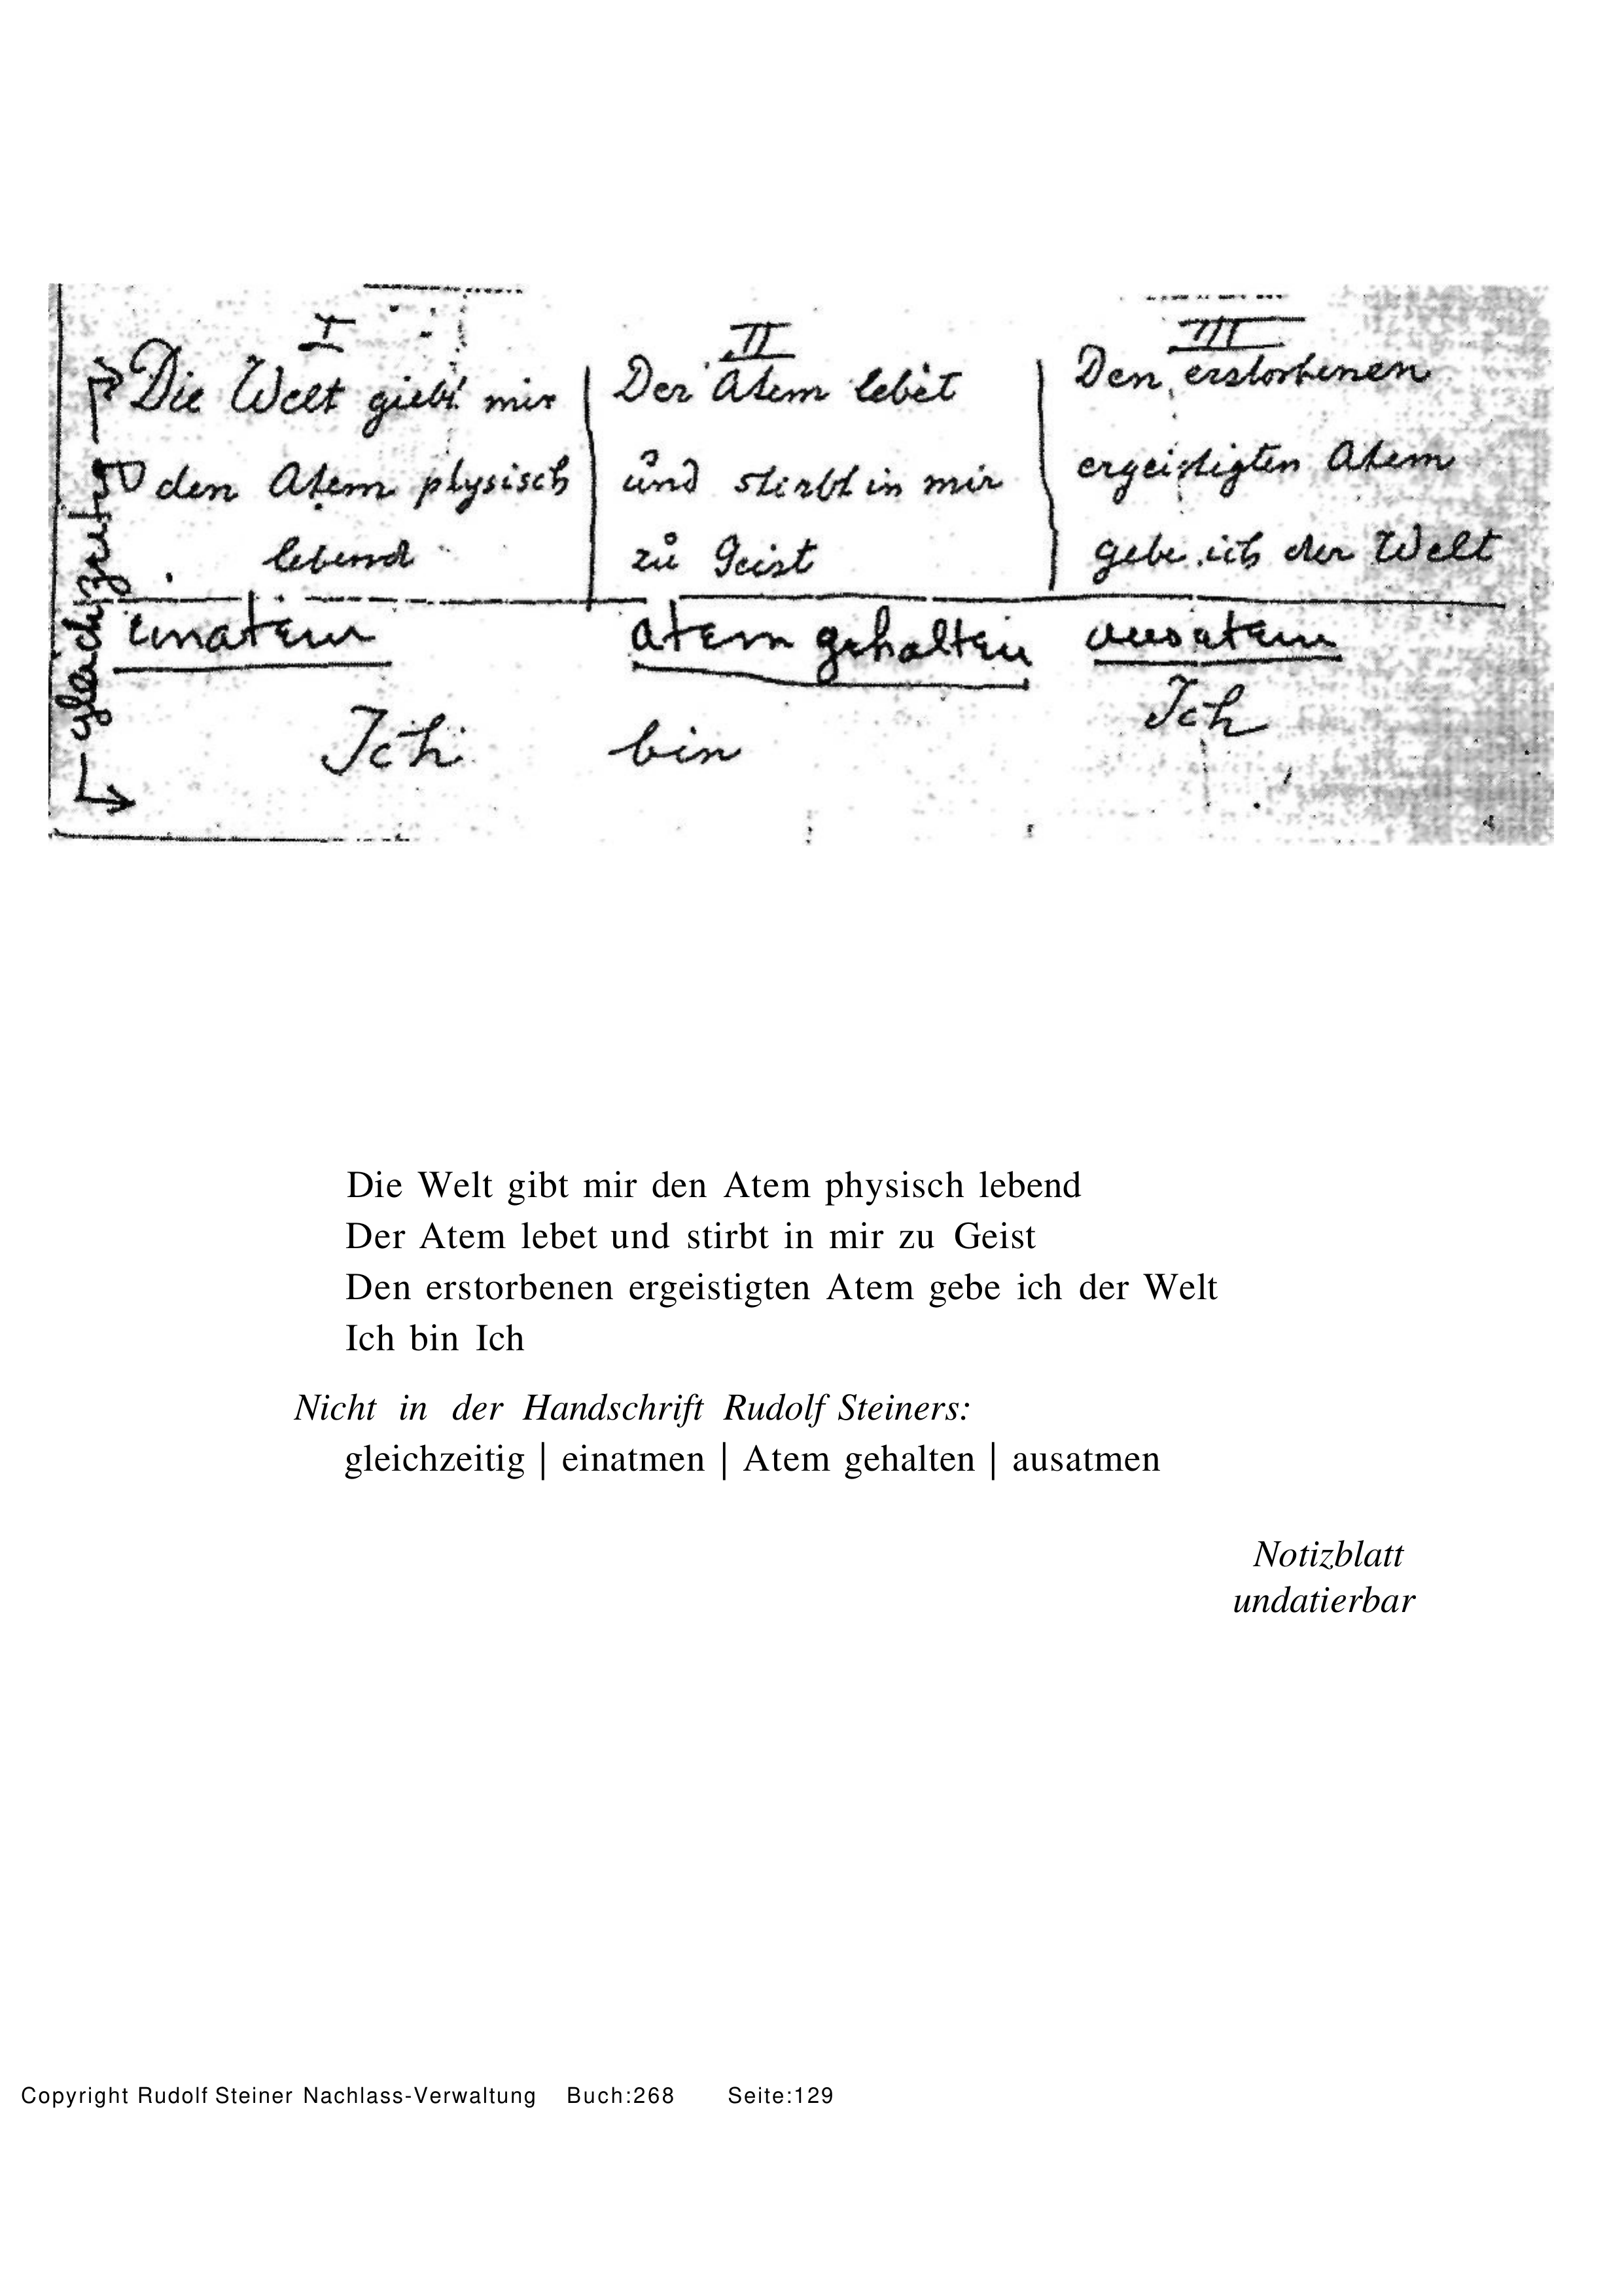 I
Die Welt giebt mir
den Atem physisch
lebend
II
Der Atem lebet
und stirbt in mir
zu Geist
III
Den erstorbenen
ergeistigten Atem
gebe ich der Welt
gleichzeitig
einatem
atem gehalten
ausatem
Ich bin Ich
Die Welt gibt mir den Atem physisch lebend
Der Atem lebet und stirbt in mir zu Geist
Den erstorbenen ergeistigten Atem gebe ich der Welt
Ich bin Ich
Nicht in der Handschrift Rudolf Steiners:
gleichzeitig | einatmen | Atem gehalten | ausatmen
Notizblatt
undatierbar
Copyright Rudolf Steiner Nachlass-Verwaltung Buch:268 Seite:129